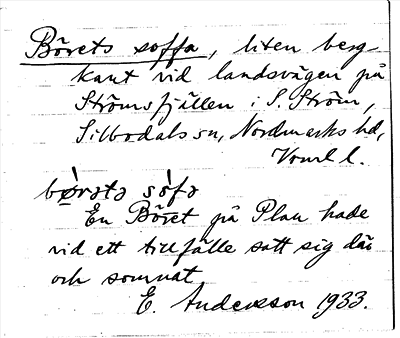 Börets soffa, liten berg-
kant vid landsvägen på
Strömsfjällen i S. Ström,
Silbodals sn, Nordmarks hd,
Vrml l.
bǿrətə sófə
En Böret på Plan hade
vid ett tillfälle satt sig där
och somnat
E. Andersson 1933.